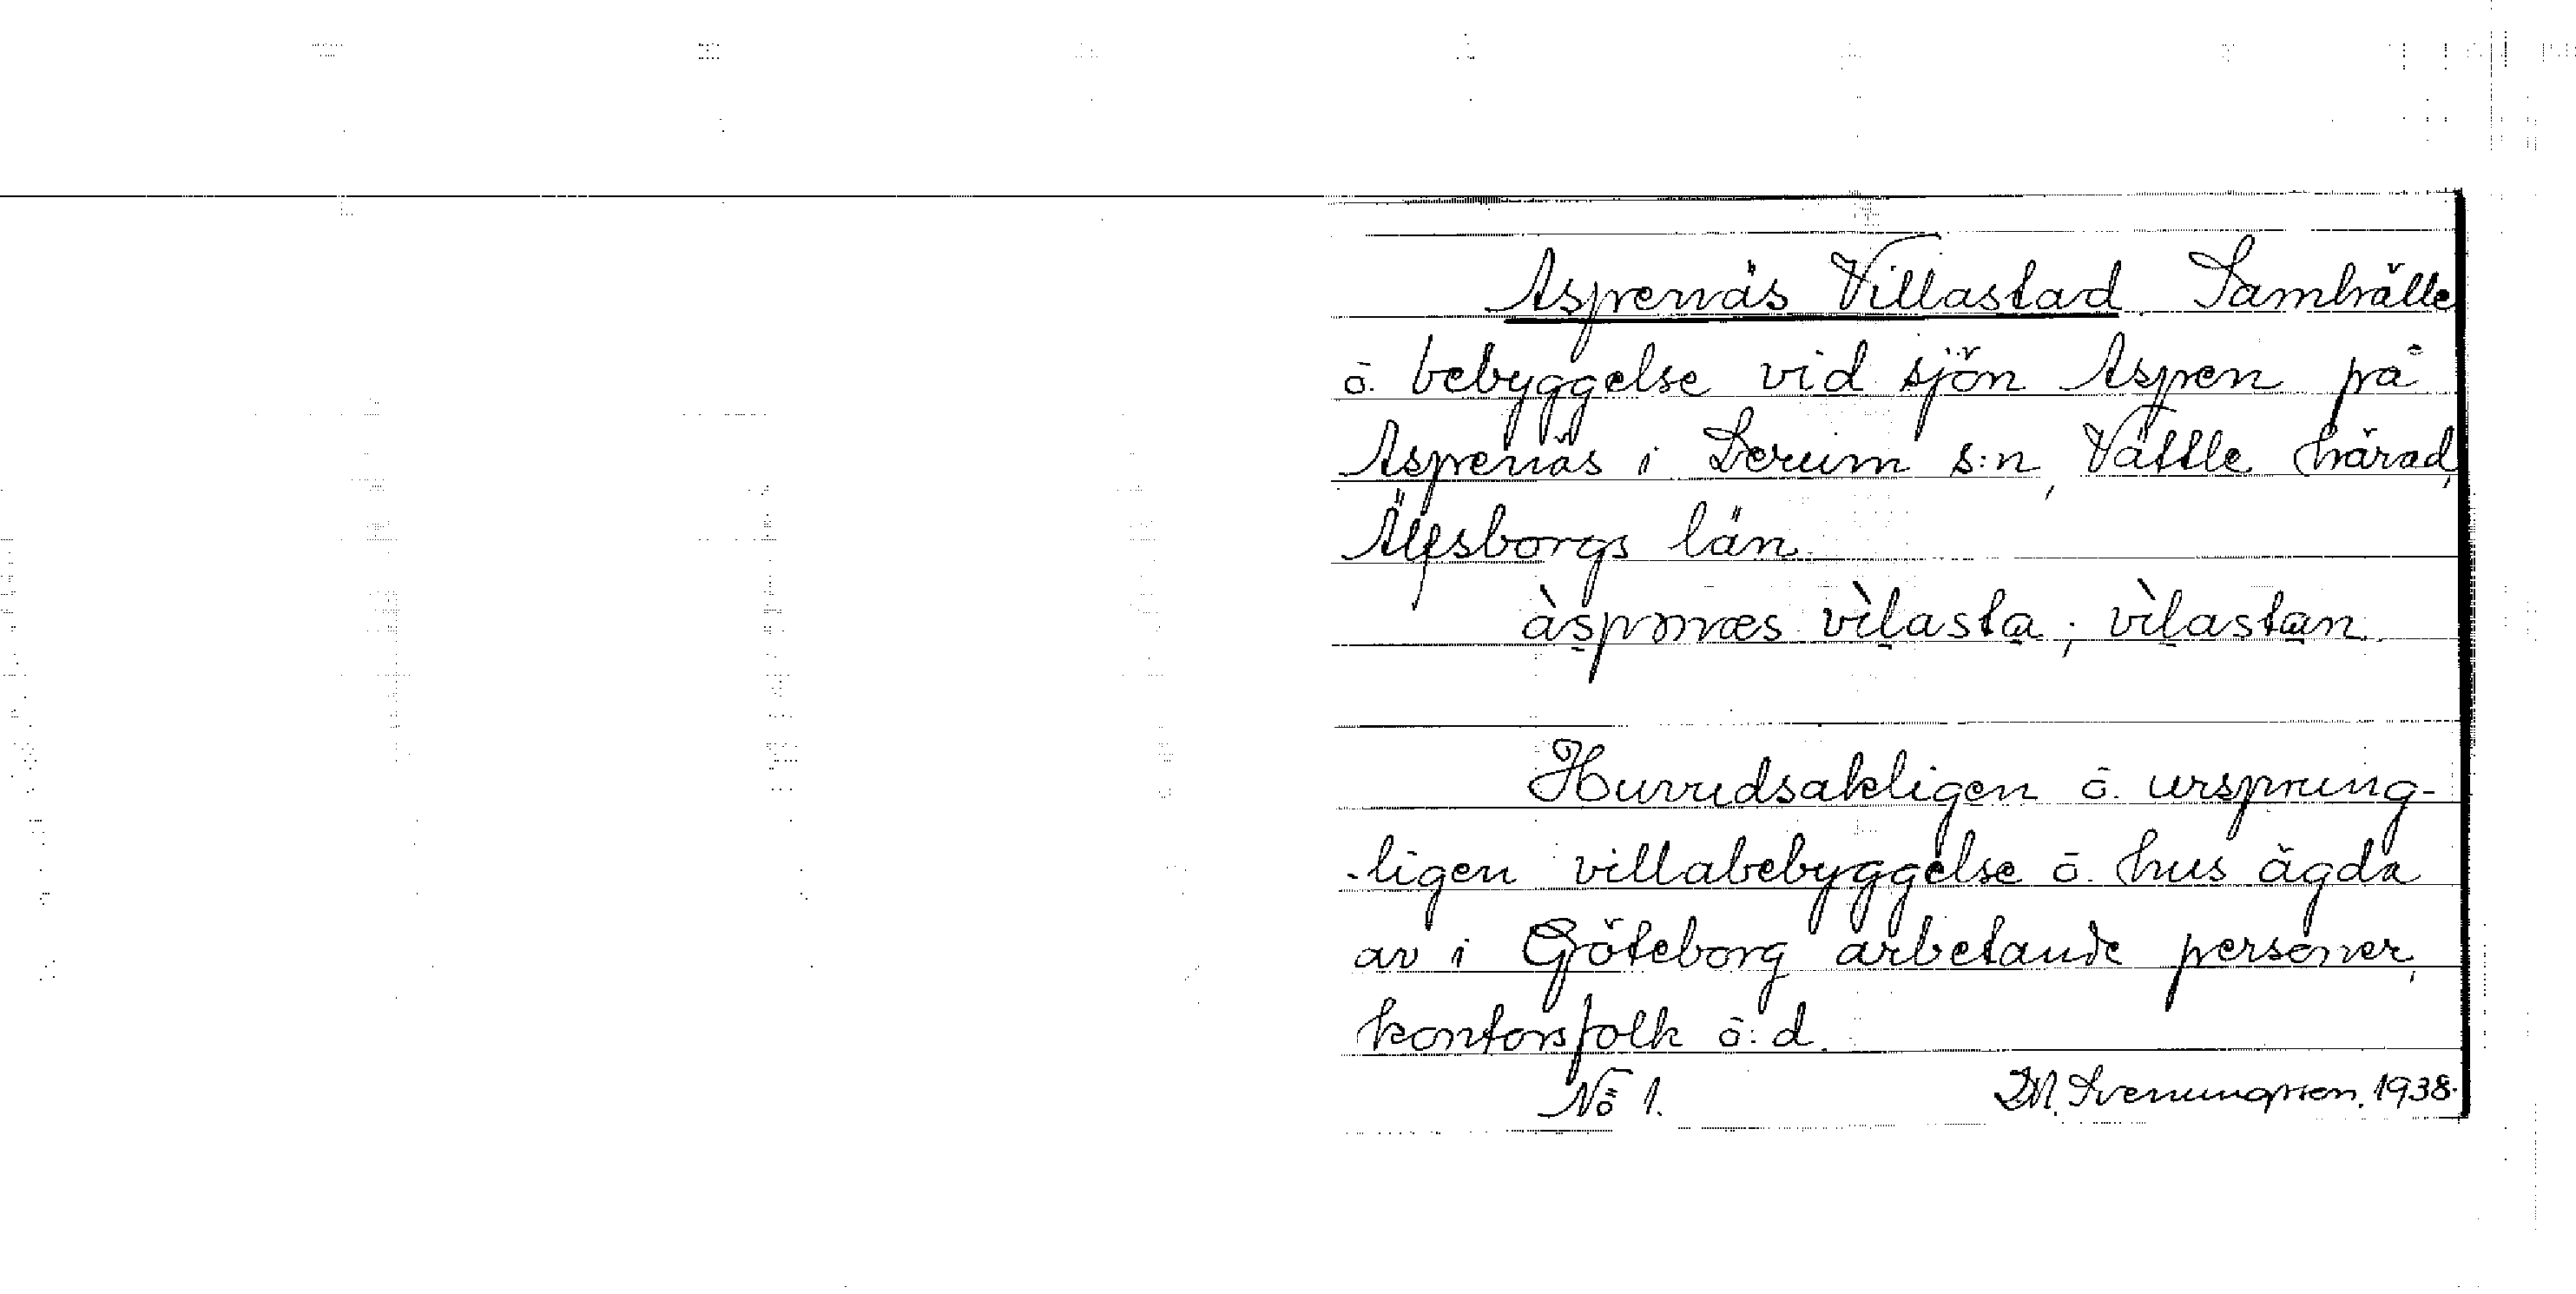 Aspenäs Villastad. Samhälle
ō. bebyggelse vid sjön Aspen på
Aspenäs i Lerum s:n, Vättle härad,
Älfsborgs län.
àspənæs vìlasta; vìlastan.
Huvudsakligen ō. ursprung-
-ligen villabebyggelse ō. hus ägda
av i Göteborg arbetande personer,
kontorsfolk ō. d.
No 1. D.M. Svenungsson. 1938.